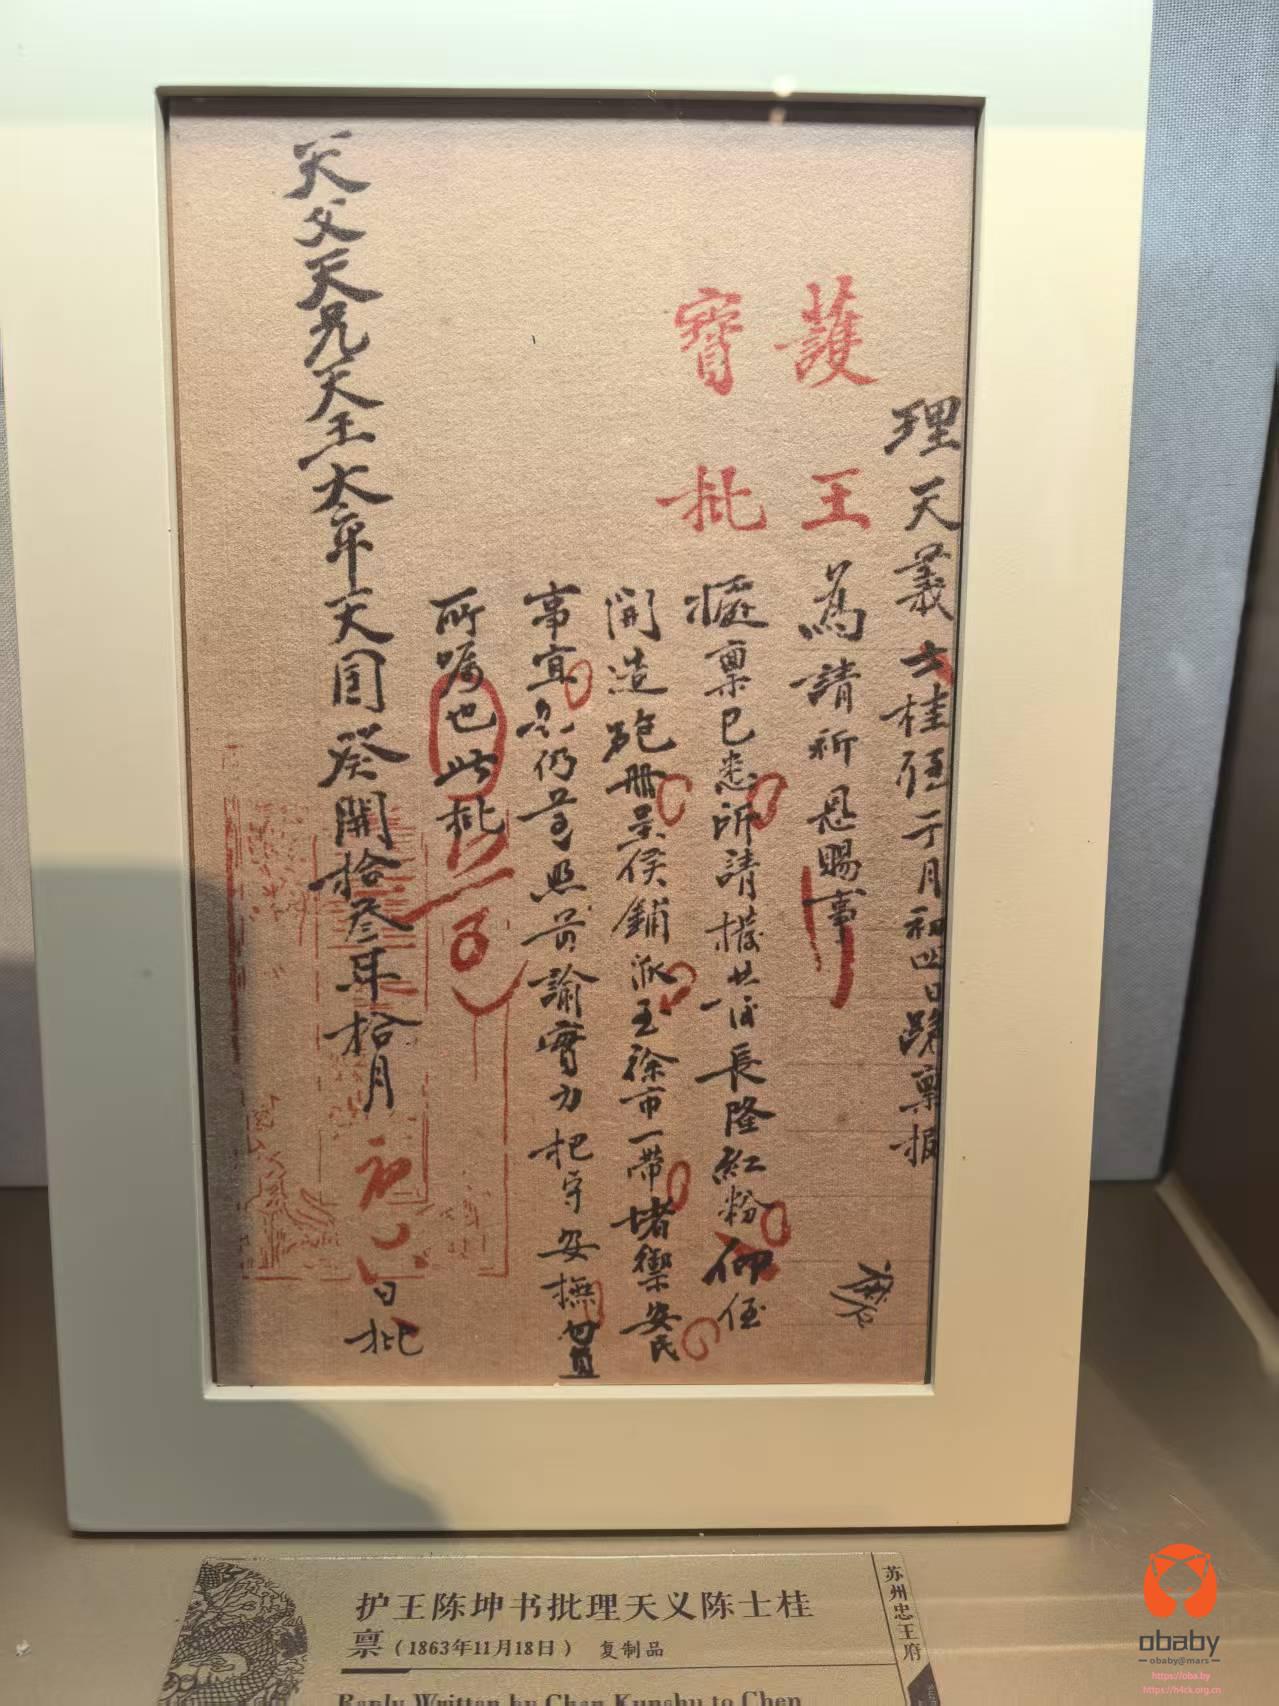 理天義士桂侄于月初四日跪稟报
護王
寶批
為請祈恩賜事
稟已悉所請撥长隆紅粉仰侄
開造砲冊呈侯鋪派至徐市一帶堵禦安民
事宜仍前諭實力把守安撫
所嘱也此批
天父天兄天王太平天囯癸開拾叁年拾月初日批
护王陈坤书批理天义陈士桂
禀（1863年11月18日） 复制品
苏州忠王府
Reply Written by Chen Kunshu to Chen
obaby
obaby@mars
https://oba.by
https://h4ck.org.cn